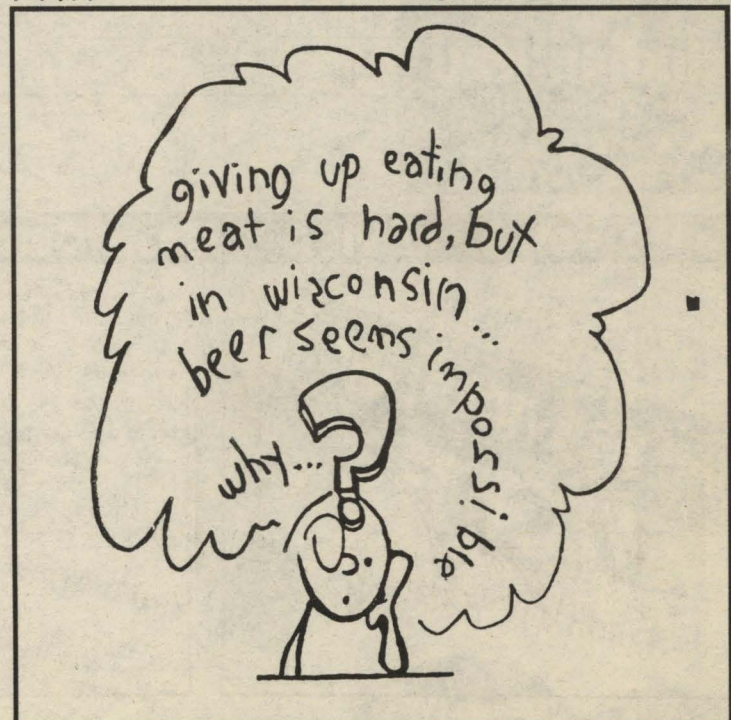 giving up eating
meat is hard, but
in wisconsin...
beer seems inpossible
why...?